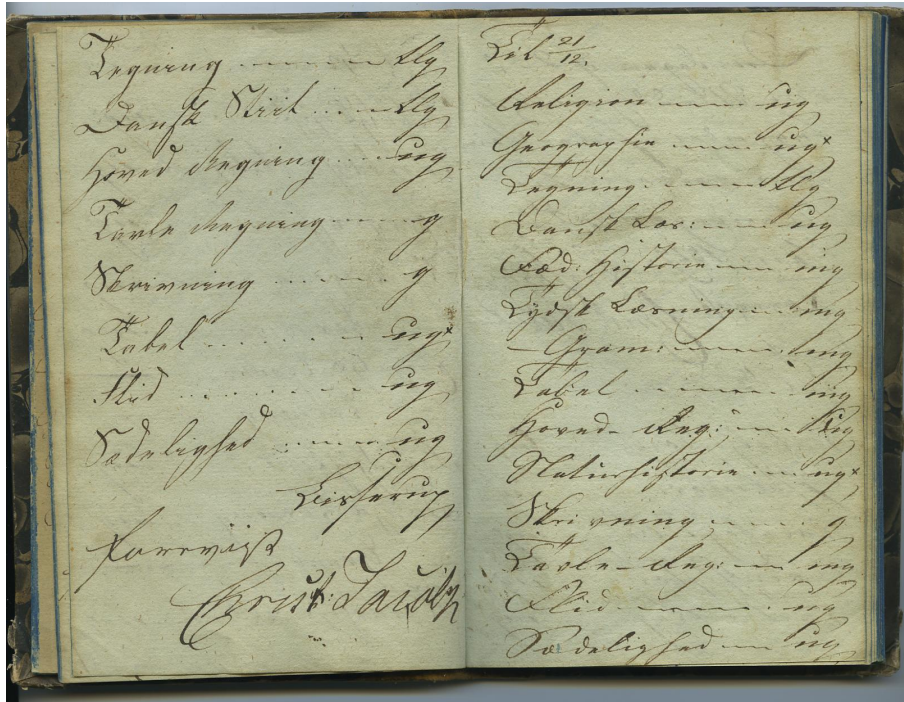 Tegning tlg
Dansk Stiil tlg
Hoved Regning ug
Tavle Regning g
Skrivning g
Tabel ug×
Flid ug
Sædelighed ug
Lisserup
Foreviist
Christ: Jacobs
Til 21/12.
Religion ug
Geographie ug×
Tegning tlg
Dansk Læs: ug
Fæd: Historie mg
Tydsk Læsning mg
— Gram: mg
Tabel mg
Hoved- Reg: ug
Naturhistorie ug×
Skrivning g
Tavle- Reg: mg
Flid ug
Sædelighed ug